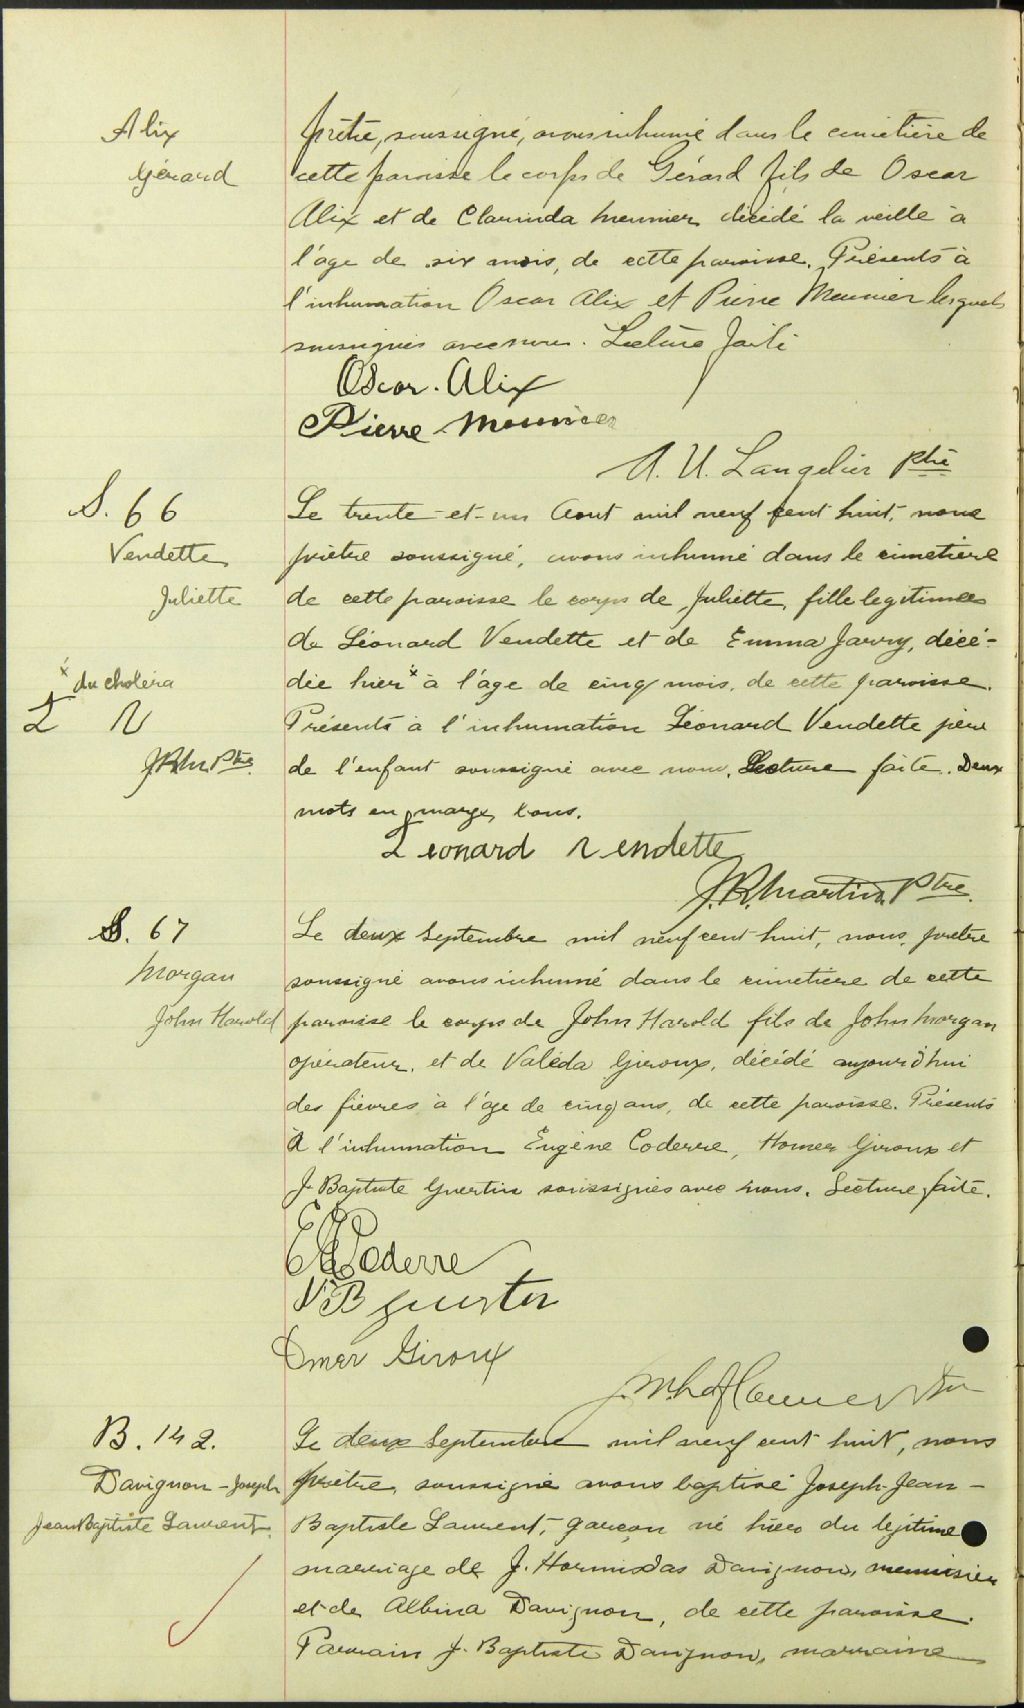 Alix
Gérard
prêtre, soussigné, avons inhumé dans le cimetière de
cette paroisse le corps de Gérard fils de Oscar
Alix et de Clarinda Meunier, décédé la veille à
l'âge de six mois, de cette paroisse. Présents à
l'inhumation Oscar Alix et Pierre Meunier lesquels
soussignés avec nous. Lecture faite
Oscar. Alix
Pierre Mounier
A. U. Langelier ptre
S. 66
Vendette
Juliette
Le trente-et-un Aout mil neuf cent huit, nous
prêtre soussigné, avons inhumé dans le cimetière
de cette paroisse le corps de Juliette, fille legitime
de Léonard Vendette et de Emma Jarry, décé-
dée hier x à l'âge de cinq mois, de cette paroisse.
x du cholera
L V
J.R.M. Ptre
Présents à l'inhumation Léonard Vendette père
de l'enfant soussigné avec nous. Lecture faite. Deux
mots en marge bons.
Leonard Vendette
J.R. Martin Ptre.
S. 67
Morgan
John Harold
Le deux Septembre mil neuf cent huit, nous, prêtre
soussigné avons inhumé dans le cimetiere de cette
paroisse le corps de John Harold fils de John Morgan
opérateur, et de Valéda Giroux, décédé aujourd'hui
des fièvres à l'âge de cinq ans, de cette paroisse. Présents
à l'inhumation Eugène Coderre, Homer Giroux et
J. Baptiste Guertin soussignés avec nous. Lecture faite.
Coderre
J B Guertin
Omer Giroux
B. 142.
Davignon - Joseph
Jean Baptiste Laurent.
Le deux Septembre mil neuf cent huit, nous
prêtre, soussigné avons baptisé Joseph-Jean-
Baptiste Laurent, garçon né hier du légitime
marriage de J. Hormisdas Davignon, menuisier
et de Albina Davignon, de cette paroisse.
Parrain J. Baptiste Davignon, marraine